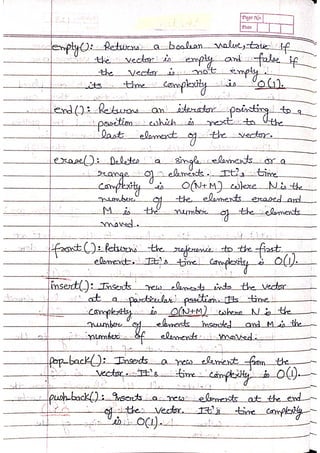 Page No.
Date
empty(): Returns a boolean value, true if
the vector is empty and false if
the vector is not empty.
its time complexity is O(1).
end(): Returns an iterator pointing to a
position which is next to the
last element of the vector.
erase(): Deletes a single elements or a
range of elements. It's time
complexity is O(N+M) where N is the
number of the elements erased and
M is the number of the elements
moved.
front(): Returns the reference to the first
element. It's time complexity is O(1).
insert(): Inserts new elements into the vector
at a particular position. Its time
complexity is O(N+M) where N is the
number of elements inserted and M is the
number of elements moved.
pop_back(): Inserts a new element from the
vector. It's time complexity is O(1).
push_back(): Inserts a new elements at the end
of the vector. It's time complexity
is O(1).